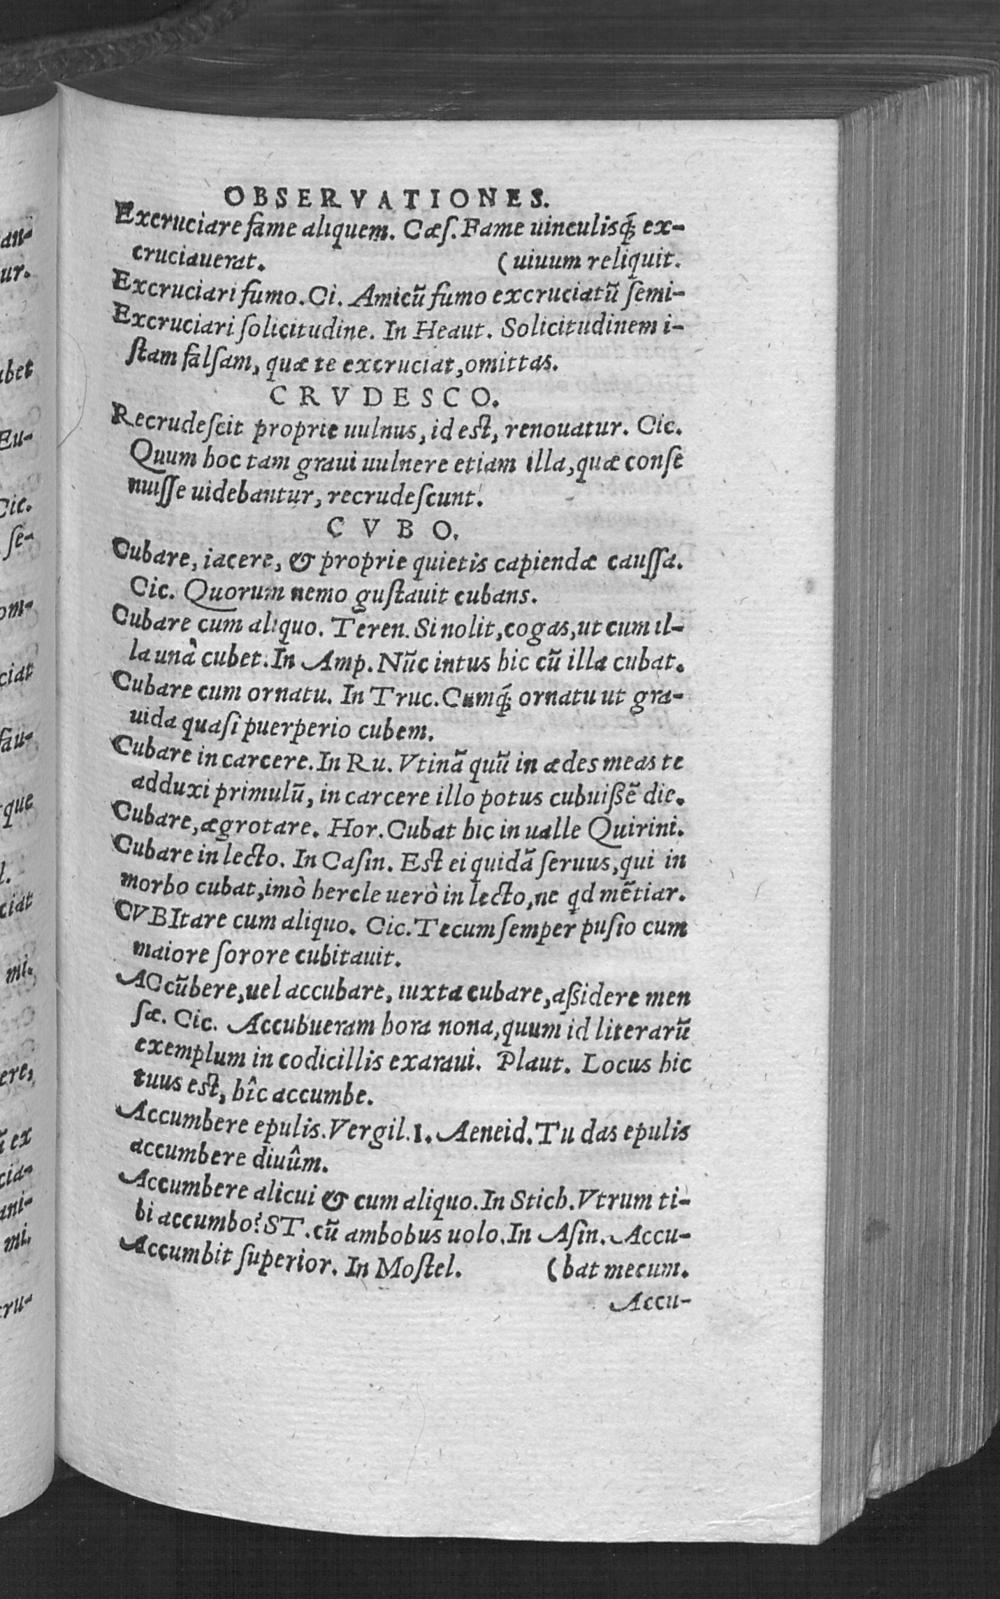 OBSERVATIONES.
Excruciare fame aliquem. Cæs. Fame uinculisq́; ex-
cruciauerat. (uiuum reliquit.
Excruciari fumo. Ci. Amicū fumo excruciatū semi-
Excruciari solicitudine. In Heaut. Solicitudinem i-
stam falsam, quæ te excruciat, omittas.
CRVDESCO.
Recrudescit proprie uulnus, id est, renouatur. Cic.
Quum hoc tam graui uulnere etiam illa, quæ conse
nuisse uidebantur, recrudescunt.
CVBO.
Cubare, iacere, & proprie quietis capiendæ caussa.
Cic. Quorum nemo gustauit cubans.
Cubare cum aliquo. Teren. Si nolit, cogas, ut cum il-
la unà cubet. In Amp. Nūc intus hic cū illa cubat.
Cubare cum ornatu. In Truc. Cumq́; ornatu ut gra-
uida quasi puerperio cubem.
Cubare in carcere. In Ru. Vtinā quū in ædes meas te
adduxi primulū, in carcere illo potus cubuißē die.
Cubare, ægrotare. Hor. Cubat hic in ualle Quirini.
Cubare in lecto. In Casin. Est ei quidā seruus, qui in
morbo cubat, imò hercle uerò in lecto, ne qd mētiar.
CVBItare cum aliquo. Cic. Tecum semper pusio cum
maiore sorore cubitauit.
ACcūbere, uel accubare, iuxta cubare, aßidere men
sæ. Cic. Accubueram hora nona, quum id literarū
exemplum in codicillis exaraui. Plaut. Locus hic
tuus est, hîc accumbe.
Accumbere epulis. Vergil. 1. Aeneid. Tu das epulis
accumbere diuûm.
Accumbere alicui & cum aliquo. In Stich. Vtrum ti-
bi accumbo? ST. cū ambobus uolo. In Asin. Accu-
Accumbit superior. In Mostel. (bat mecum.
Accu-